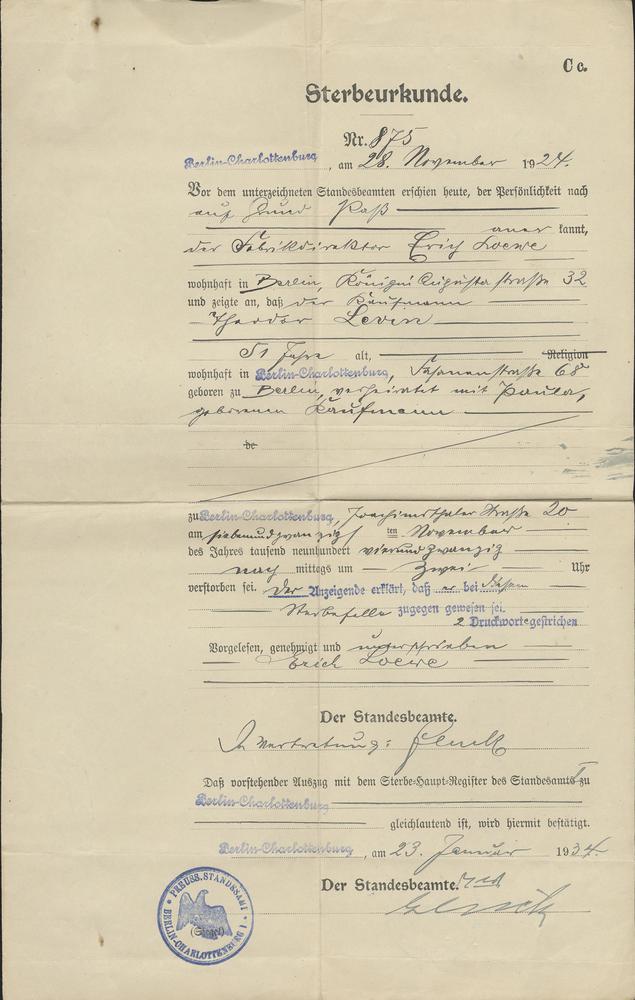 C c.
Sterbeurkunde.
Nr. 875
Berlin-Charlottenburg, am 28. November 1924.
Vor dem unterzeichneten Standesbeamten erschien heute, der Persönlichkeit nach
auf Grund Paß
anerkannt,
der Fabrikdirektor Erich Loewe
wohnhaft in Berlin, Königin Augusta straße 32
und zeigte an, daß der Kaufmann
Theodor Levin
51 Jahre alt, Religion
wohnhaft in Berlin-Charlottenburg, Fasanenstraße 68
geboren zu Berlin, verheiratet mit Paula,
geborenen Kaufmann
de
zu Berlin-Charlottenburg, Joachimsthaler Straße 20
am siebenundzwanzigsten November
des Jahres tausend neunhundert vierundzwanzig
nach mittags um zwei Uhr
verstorben sei. Der Anzeigende erklärt, daß er bei diesem
Sterbefalle zugegen gewesen sei.
2 Druckworte gestrichen
Vorgelesen, genehmigt und unterschrieben
Erich Loewe
Der Standesbeamte.
In Vertretung:
Daß vorstehender Auszug mit dem Sterbe-Haupt-Register des Standesamts I zu
Berlin-Charlottenburg
gleichlautend ist, wird hiermit bestätigt.
Berlin-Charlottenburg, am 23. Januar 1934.
Der Standesbeamte.
PREUSS. STANDESAMT
BERLIN-CHARLOTTENBURG I
(Siegel)